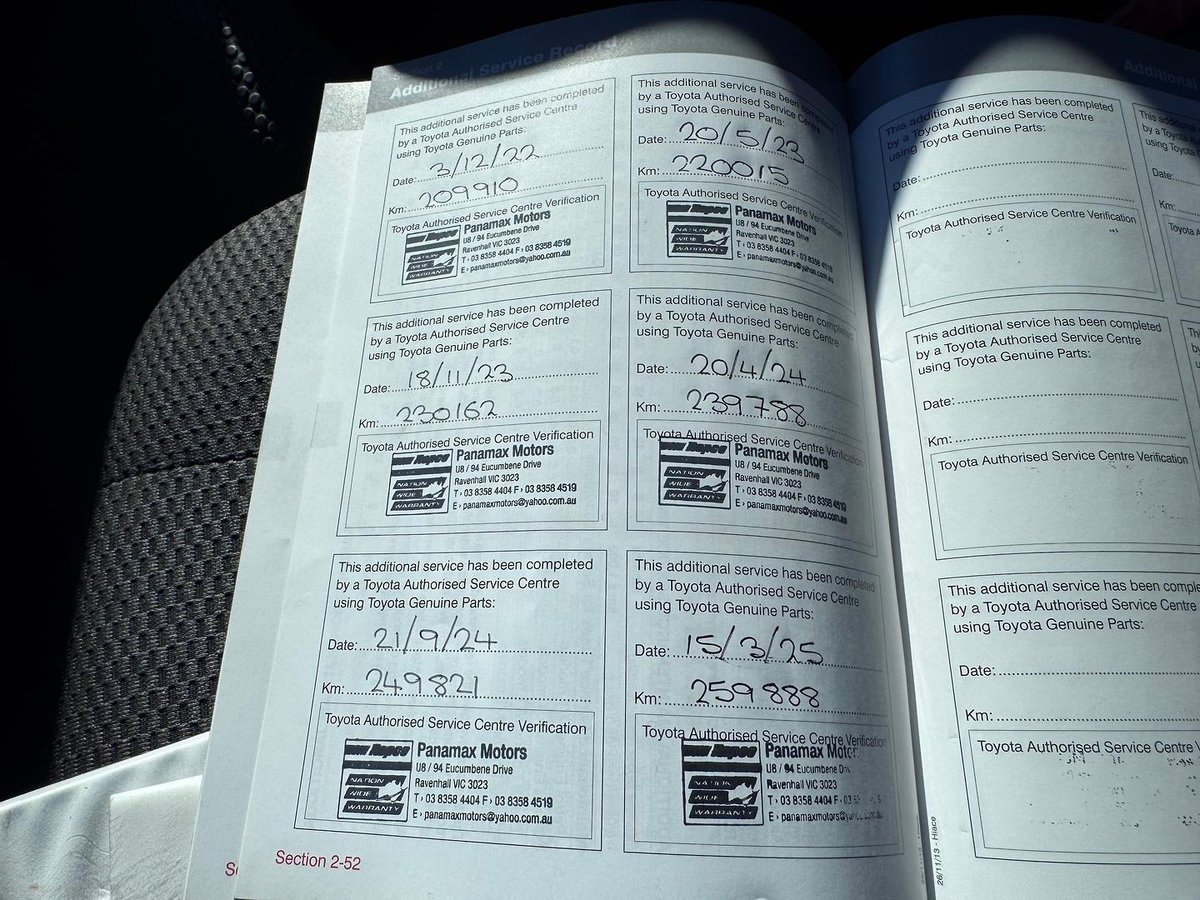 Section 2
Additional Service Record
This additional service has been completed
by a Toyota Authorised Service Centre
using Toyota Genuine Parts:
Date: 3/12/22
Km: 209910
Toyota Authorised Service Centre Verification
Repco
NATION
WIDE
WARRANTY
Panamax Motors
U8 / 94 Eucumbene Drive
Ravenhall VIC 3023
T › 03 8358 4404 F › 03 8358 4519
E › panamaxmotors@yahoo.com.au
This additional service has been completed
by a Toyota Authorised Service Centre
using Toyota Genuine Parts:
Date: 20/5/23
Km: 220015
Toyota Authorised Service Centre Verification
Repco
NATION
WIDE
WARRANTY
Panamax Motors
U8 / 94 Eucumbene Drive
Ravenhall VIC 3023
T › 03 8358 4404 F › 03 8358 4519
E › panamaxmotors@yahoo.com.au
This additional service has been completed
by a Toyota Authorised Service Centre
using Toyota Genuine Parts:
Date: 18/11/23
Km: 230162
Toyota Authorised Service Centre Verification
Repco
NATION
WIDE
WARRANTY
Panamax Motors
U8 / 94 Eucumbene Drive
Ravenhall VIC 3023
T › 03 8358 4404 F › 03 8358 4519
E › panamaxmotors@yahoo.com.au
This additional service has been completed
by a Toyota Authorised Service Centre
using Toyota Genuine Parts:
Date: 20/4/24
Km: 239788
Toyota Authorised Service Centre Verification
Repco
NATION
WIDE
WARRANTY
Panamax Motors
U8 / 94 Eucumbene Drive
Ravenhall VIC 3023
T › 03 8358 4404 F › 03 8358 4519
E › panamaxmotors@yahoo.com.au
This additional service has been completed
by a Toyota Authorised Service Centre
using Toyota Genuine Parts:
Date: 21/9/24
Km: 249821
Toyota Authorised Service Centre Verification
Repco
NATION
WIDE
WARRANTY
Panamax Motors
U8 / 94 Eucumbene Drive
Ravenhall VIC 3023
T › 03 8358 4404 F › 03 8358 4519
E › panamaxmotors@yahoo.com.au
This additional service has been completed
by a Toyota Authorised Service Centre
using Toyota Genuine Parts:
Date: 15/3/25
Km: 259888
Toyota Authorised Service Centre Verification
Repco
NATION
WIDE
WARRANTY
Panamax Motors
U8 / 94 Eucumbene
Ravenhall VIC 3023
T › 03 8358 4404 F › 03
E › panamaxmotors
Section 2-52
Additional
This additional service has been completed
by a Toyota Authorised Service Centre
using Toyota Genuine Parts:
Date:
Km:
Toyota Authorised Service Centre Verification
This additional service has been completed
by a Toyota Authorised Service Centre
using Toyota Genuine Parts:
Date:
Km:
Toyota Authorised Service Centre Verification
This additional service has been
by a Toyota Authorised Service Centre
using Toyota Genuine Parts:
Date:
Km:
Toyota Authorised Service Centre
26/11/13 - Hiace
This
by a
using
Date:
Km: